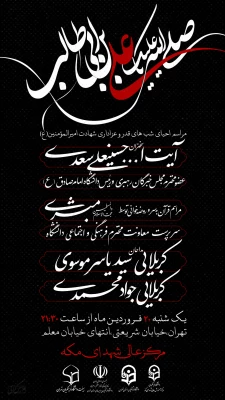 صلی الله علیک یا علی بن ابی طالب
مراسم احیای شب های قدر و عزاداری شهادت امیرالمؤمنین(ع)
سخنران:
آیت ا... حسینعلی سعدی
عضو محترم مجلس خبرگان رهبری و رئیس دانشگاه امام صادق (ع)
مراسم قرآن بسر و
سرپرست معاونت محترم فرهنگی و اجتماعی دانشگاه
مداحان
کربلائی سید یاسر موسوی
کربلائی جواد محمدی
یک شنبه ۲۰ فروردین ماه از ساعت ۲۱:۳۰
تهران،خیابان شریعتی،انتهای خیابان معلم
مرکز عالی شهدای مکه